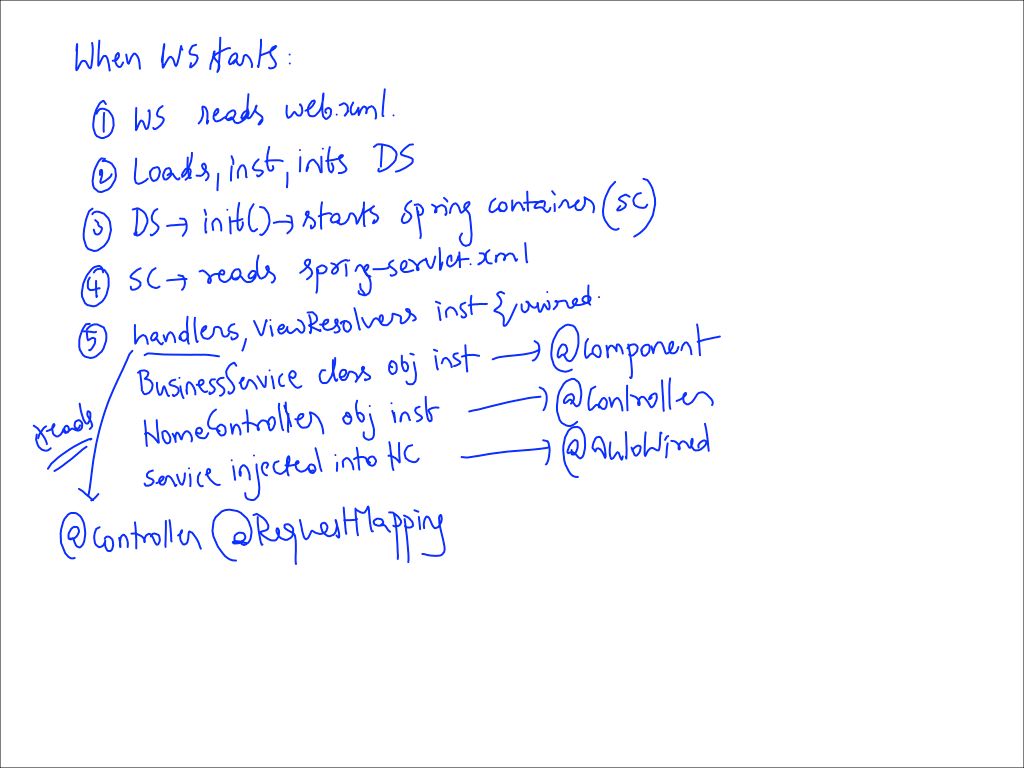 When WS starts:
① WS reads web.xml.
② Loads, inst, inits DS
③ DS → init() → starts spring container (SC)
④ SC → reads spring-servlet.xml
⑤ handlers, ViewResolvers inst & wired.
BusinessService class obj inst → @Component
HomeController obj inst → @Controller
service injected into HC → @AutoWired
reads
@Controller @RequestMapping